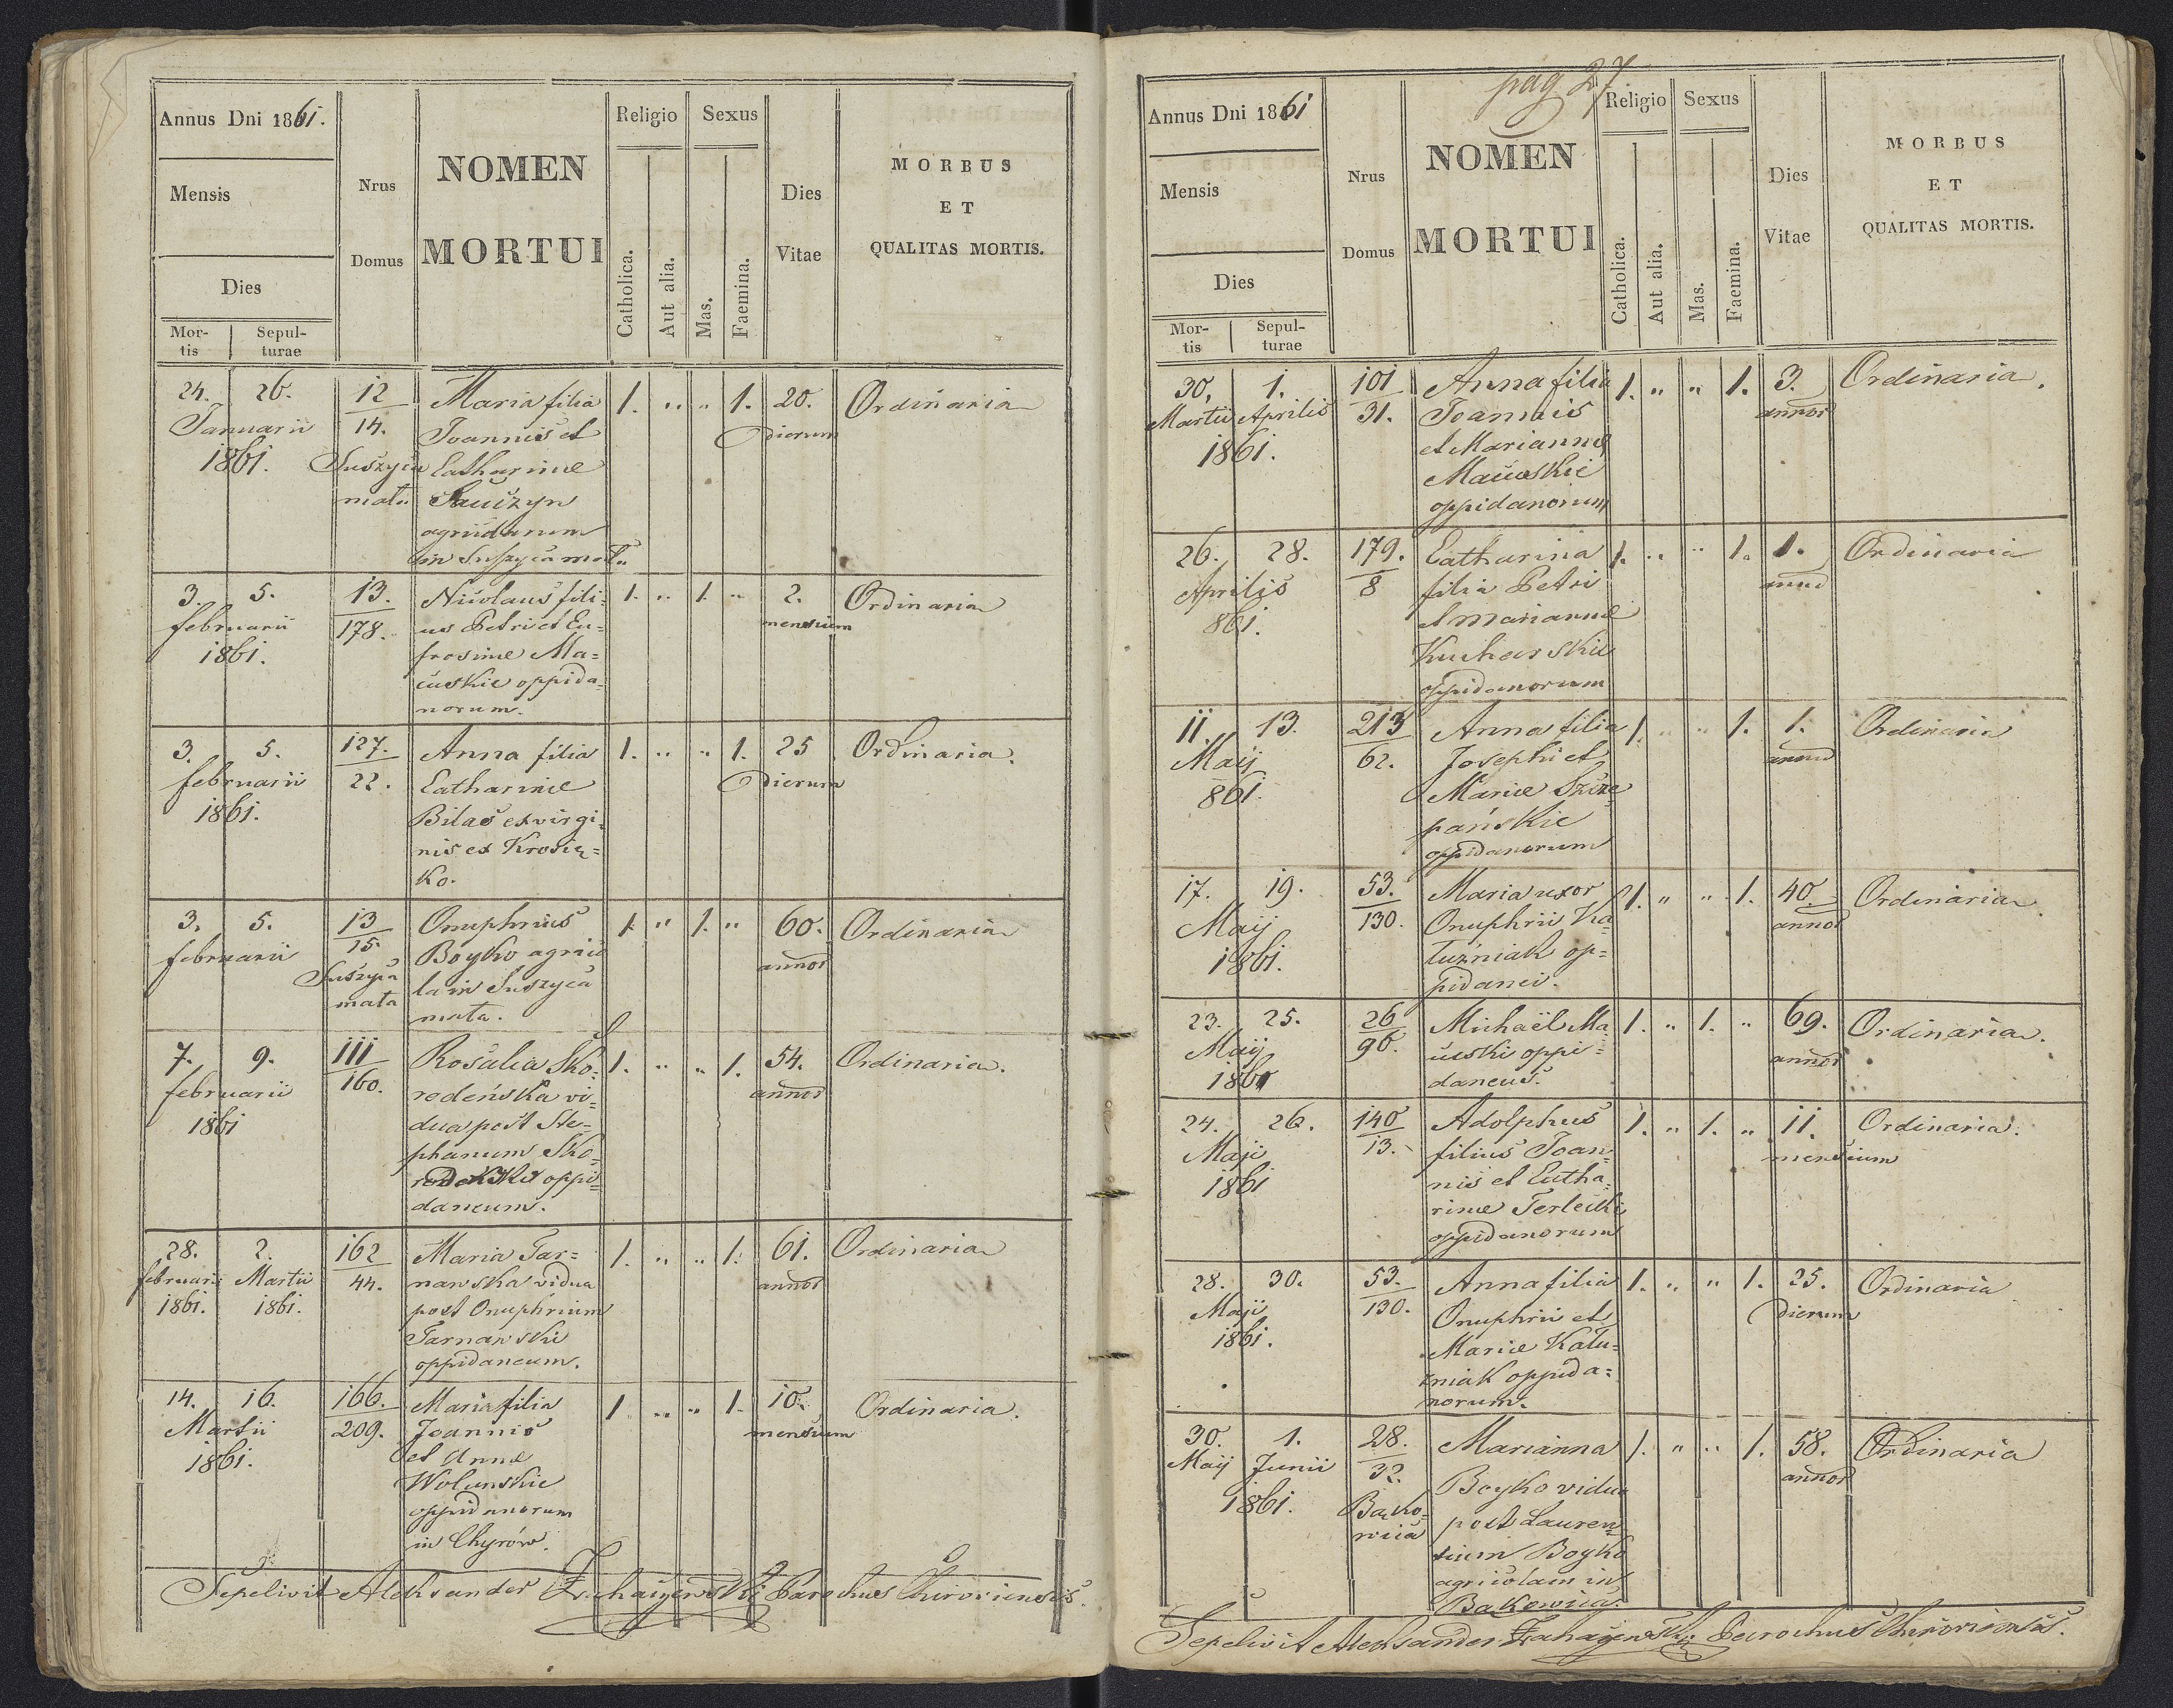 Annus Dni 1861.
Mensis
Dies
Mor-
tis
Sepul-
turae
Nrus
Domus
NOMEN
MORTUI
Religio
Catholica.
Aut alia.
Sexus
Mas.
Faemina.
Dies
Vitae
MORBUS
ET
QUALITAS MORTIS.
24. 26. 12 Maria filia 1. " " 1. 20. Ordinaria
Januarii 14. Joannis et dierum
1861. Suszyca Catharinae
mała
agricolarum
in Suszyca mała
3. 5. 13. Nicolaus fili= 1. " 1. " 2. Ordinaria
februarii 178. us Petri et Eu= mensium
1861. frosinae Ma=
cuskie oppida=
norum.
3. 5. 127. Anna filia 1. " " 1. 25 Ordinaria.
februarii 22. Catharinae dierum
1861. Bilas ex virgi=
nis ex Krosien=
ko.
3. 5. 13 Onuphrius 1. " 1. " 60. Ordinaria
februarii 15 Boyko agrico annor
Suszyca la in Suszyca
mała mała.
7. 9. 111 Rosalia Sko= 1. " " 1. 54. Ordinaria.
februarii 160. rodeńska vi= annor
1861 dua post Ste=
phanum Sko=
rodeński oppi=
daneum.
28. 2. 162 Maria Tar= 1. " " 1. 61. Ordinaria
februarii Martii 44. nawska vidua annor
1861. 1861. post Onuphrium
Tarnawski
oppidaneum.
14. 16. 166. Maria filia 1. " " 1. 10. Ordinaria.
Martii 209. Joannis mensium
1861. et Annae
Wolanskie
oppidanorum
in Chyrów.
Sepelivit Aleksander Parochus Chiroviensis.
pag 27.
Annus Dni 1861
Mensis
Dies
Mor-
tis
Sepul-
turae
Nrus
Domus
NOMEN
MORTUI
Religio
Catholica.
Aut alia.
Sexus
Mas.
Faemina.
Dies
Vitae
MORBUS
ET
QUALITAS MORTIS.
30. 1. 101 Anna filia 1. " " 1. 3. Ordinaria.
Martii Aprilis 31. Joannis annor
1861. et Marianne
Macuskie
oppidanorum
26. 28. 179. Catharina 1. " " 1. 1. Ordinaria
Aprilis 8 filia Petri anni
861. et Mariannae
Kucharskie
oppidanorum
11. 13. 213 Anna filia 1. " " 1. 1. Ordinaria
Maij 62. Josephi et anni
861. Mariae Szcze=
pańskie
oppidanorum
17. 19. 53. Maria uxor 1. " " 1. 40. Ordinaria.
Maij 130. Onuphrii Ka= annor
1861. łuźniak op=
pidanei.
23. 25. 26 Michaël Ma 1. " 1. " 69. Ordinaria.
Maij 96. cuski oppi= annor
1861 daneus.
24. 26. 140 Adolphus 1. " 1. " 11. Ordinaria.
Maji 13. filius Joan= mensium
1861 nis et Catha=
rinae Terlecki
oppidanorum
28. 30. 53. Anna filia 1. " " 1. 25. Ordinaria
Maji 130. Onuphrii et dierum
1861. Mariae Kału=
źniak oppida=
norum.
30. 1. 28. Marianna 1. " " 1. 58. Ordinaria
Maij Junii 32. Boyko vidua annor
1861. Bąko= post Lauren=
wica tium Boyko
agricolam in
Bakowica.
Sepelivit Aleksander Parochus Chiroviensis.